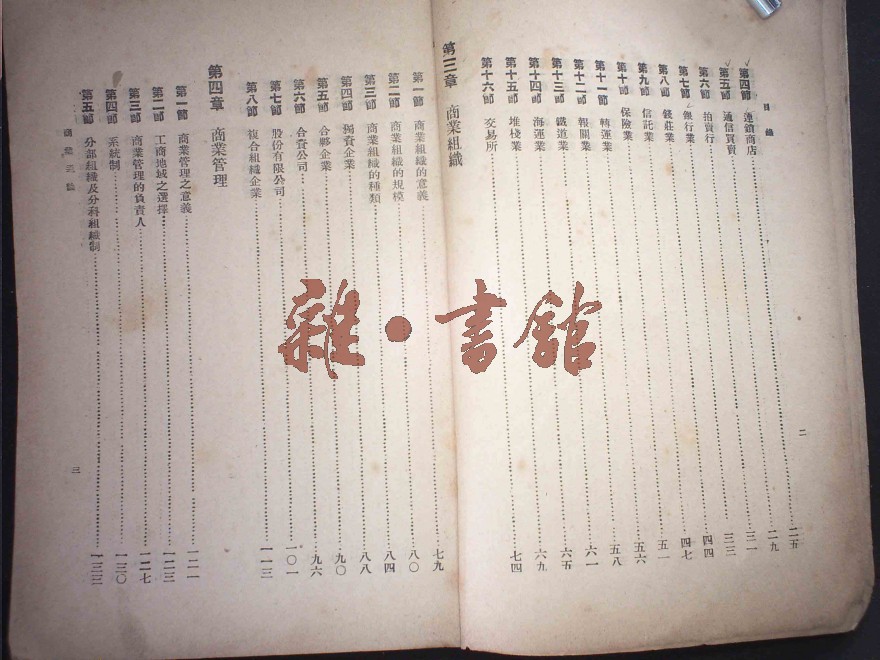 目錄
二
第四節 連鎖商店……二五
第五節 通信買賣……二九
第六節 拍賣行……三一
第七節 銀行業……三三
第八節 錢莊業……四四
第九節 信託業……四七
第十節 保險業……五一
第十一節 轉運業……五六
第十二節 報關業……五八
第十三節 鐵道業……六一
第十四節 海運業……六五
第十五節 堆棧業……六九
第十六節 交易所……七四
第三章 商業組織
第一節 商業組織的意義……七九
第二節 商業組織的規模……八〇
第三節 商業組織的種類……八四
第四節 獨資企業……八八
第五節 合夥企業……九〇
第六節 合資公司……九六
第七節 股份有限公司……一〇一
第八節 複合組織企業……一一三
第四章 商業管理
第一節 商業管理之意義……一二一
第二節 工商地域之選擇……一二三
第三節 商業管理的負責人……一二七
第四節 系統制……一三〇
第五節 分部組織及分科組織制……一三三
三
雜·書館